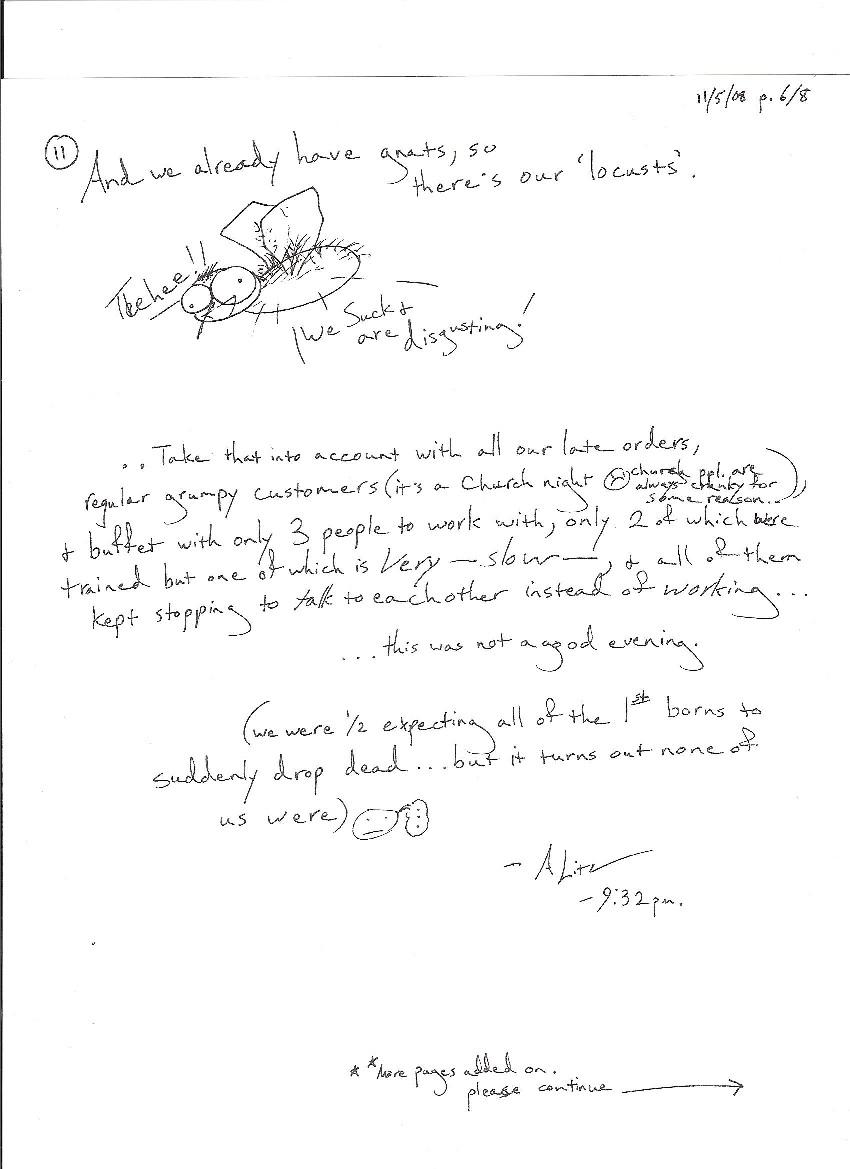 11/5/08 p. 6/8
11 And we already have gnats, so
there's our 'locusts'.
Teehee!!
We Suck &
are disgusting!
..Take that into account with all our late orders,
regular grumpy customers (it's a Church night church ppl. are
always cranky for
some reason...),
& buffet with only 3 people to work with, only 2 of which were
trained but one of which is Very —slow—, & all of them
kept stopping to talk to each other instead of working...
...this was not a good evening.
(we were 1/2 expecting all of the 1st borns to
suddenly drop dead...but it turns out none of
us were)
- ALitz
- 9:32pm.
* *More pages added on.
please continue